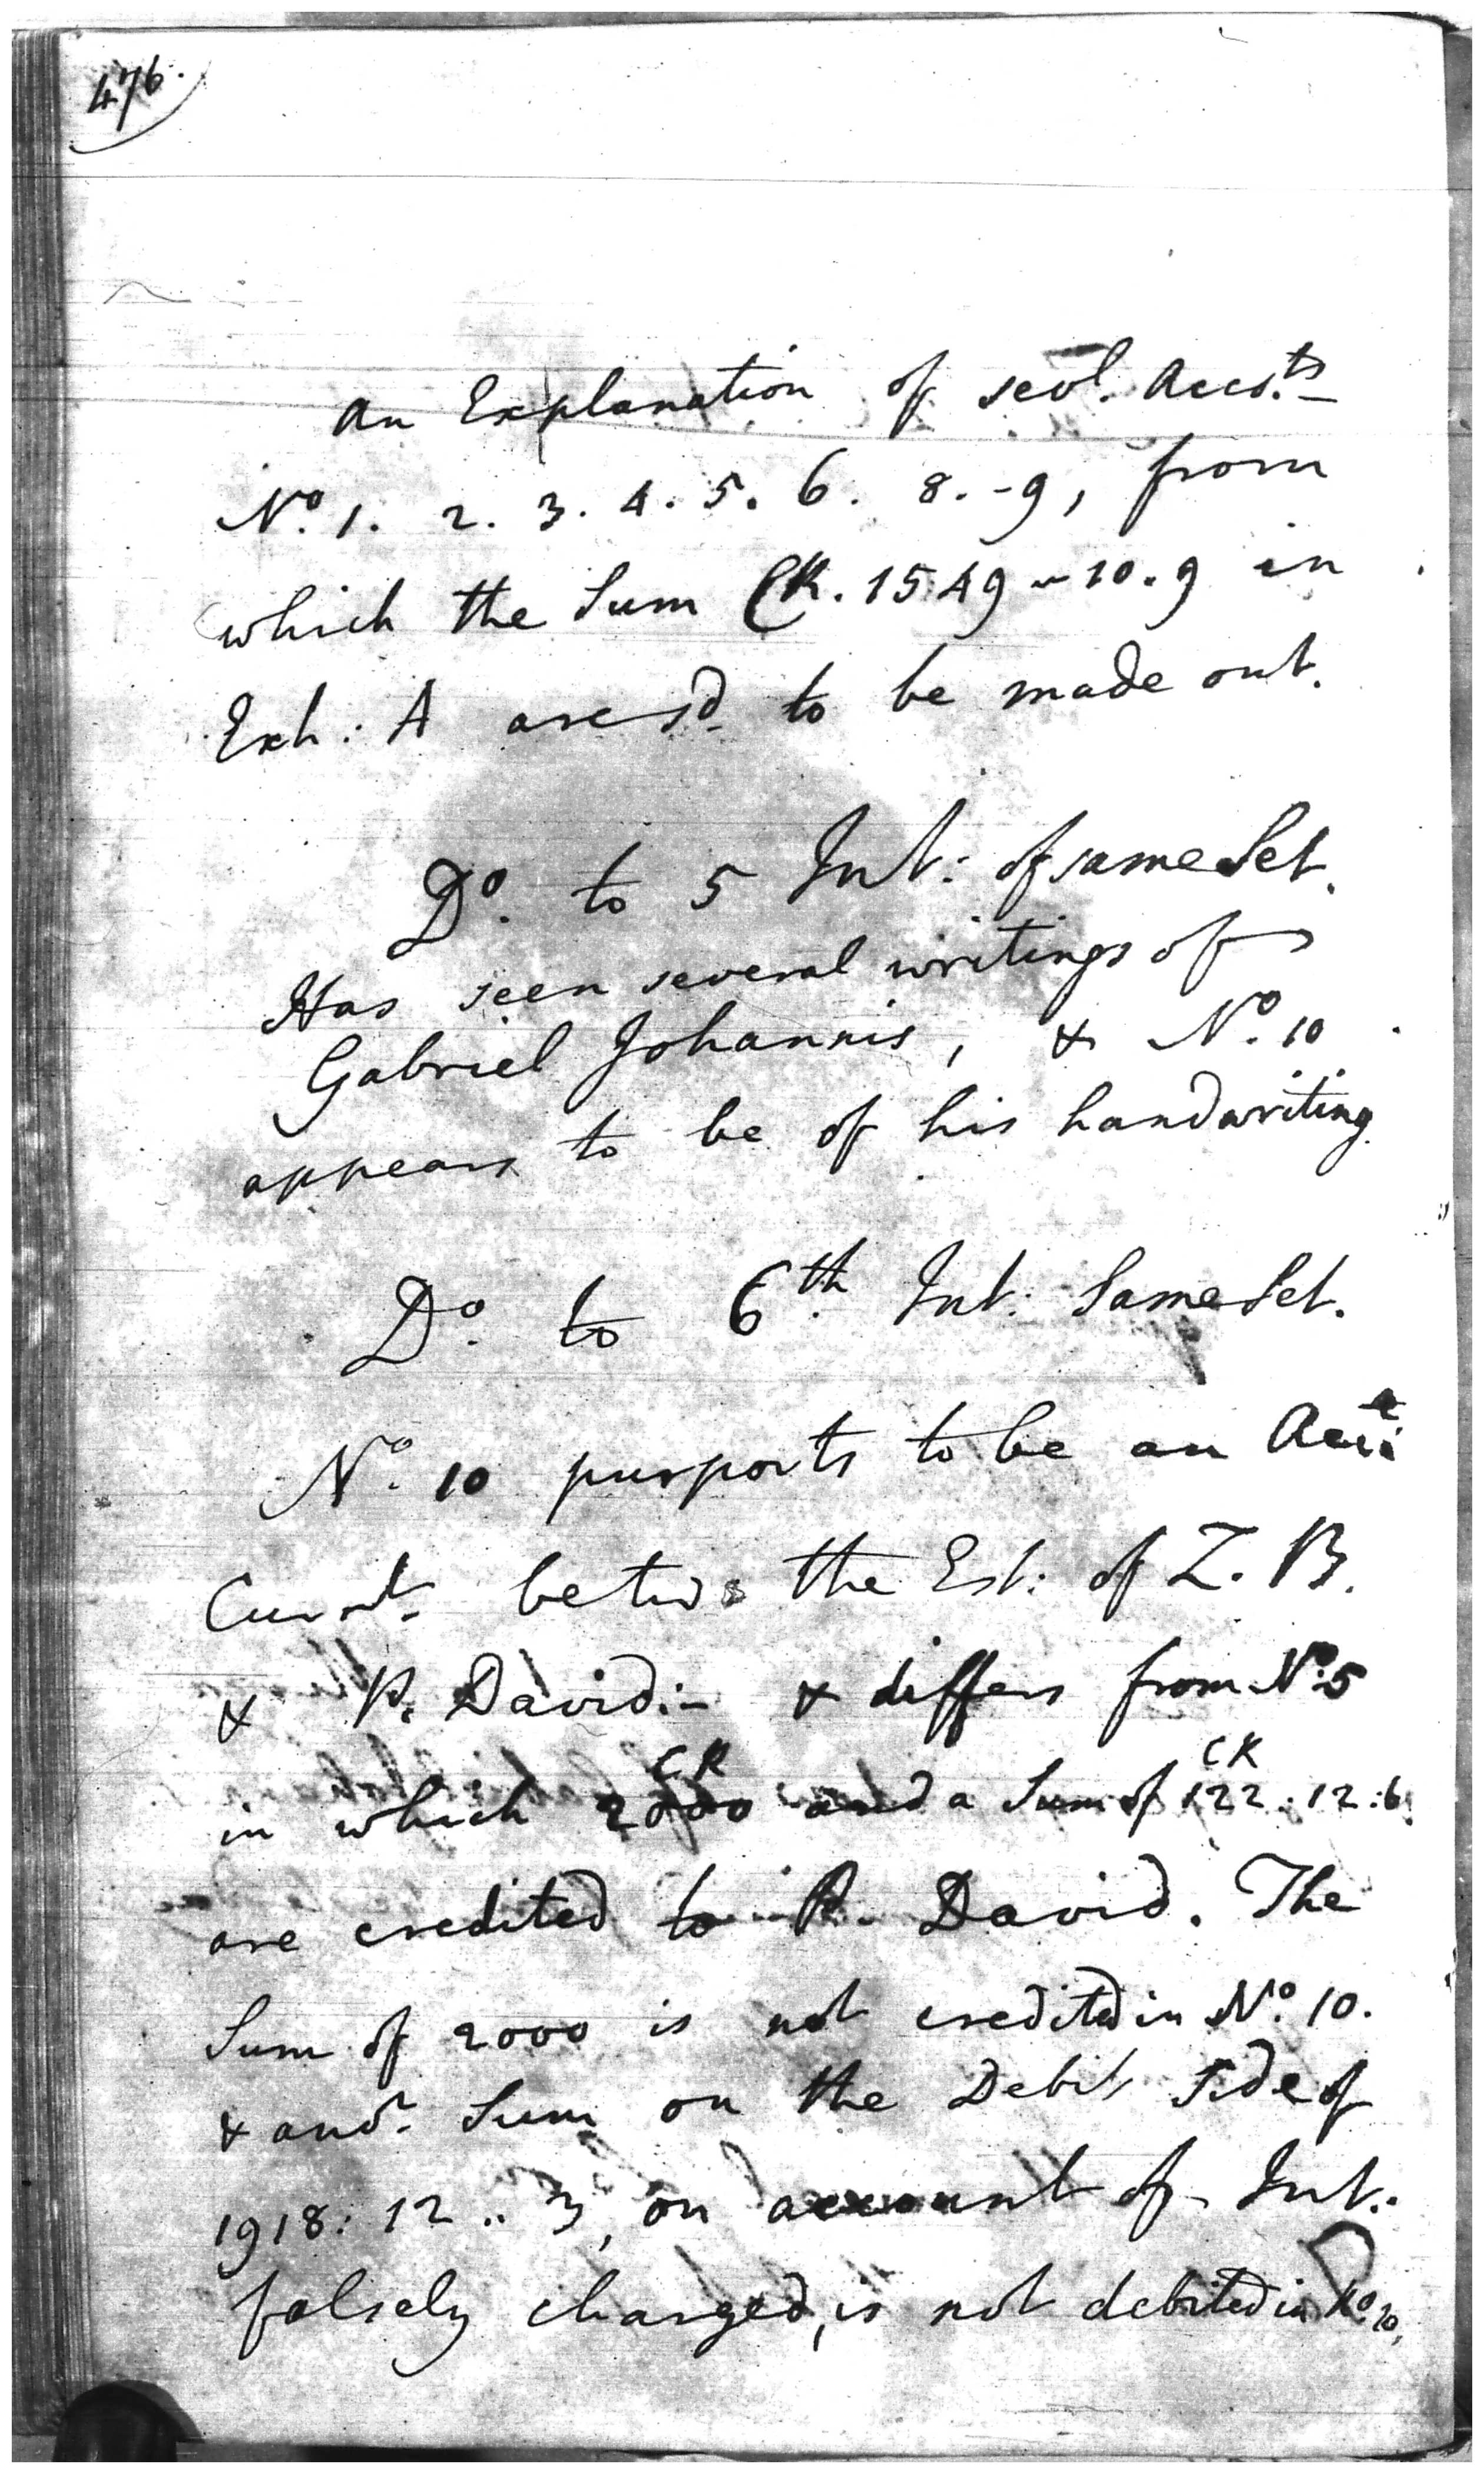 476.
An Explanation of sevl. Accots
No. 1. 2. 3. 4. 5. 6. 8. - 9, from
which the Sum CR. 1549 - 10. 9 in
Exh: A are sd. to be made out.
Do. to 5 Int: of same Set.
Has seen several writings of
Gabriel Johannis, & No. 10
appears to be of his handwriting
Do. to 6th Int: Same Set.
No. 10 purports to be an Acct
Currt. betw. the Est: of Z. B.
& P. David:- & differs from No. 5
CR CR
in which 2000 and a Sum of 122. 12:6
are credited to P. David. The
Sum of 2000 is not credited in No. 10.
& anor. Sum on the Debit Side of
1918: 12 .. 3, on account of Int:
falsely charged, is not debited in No. 10,